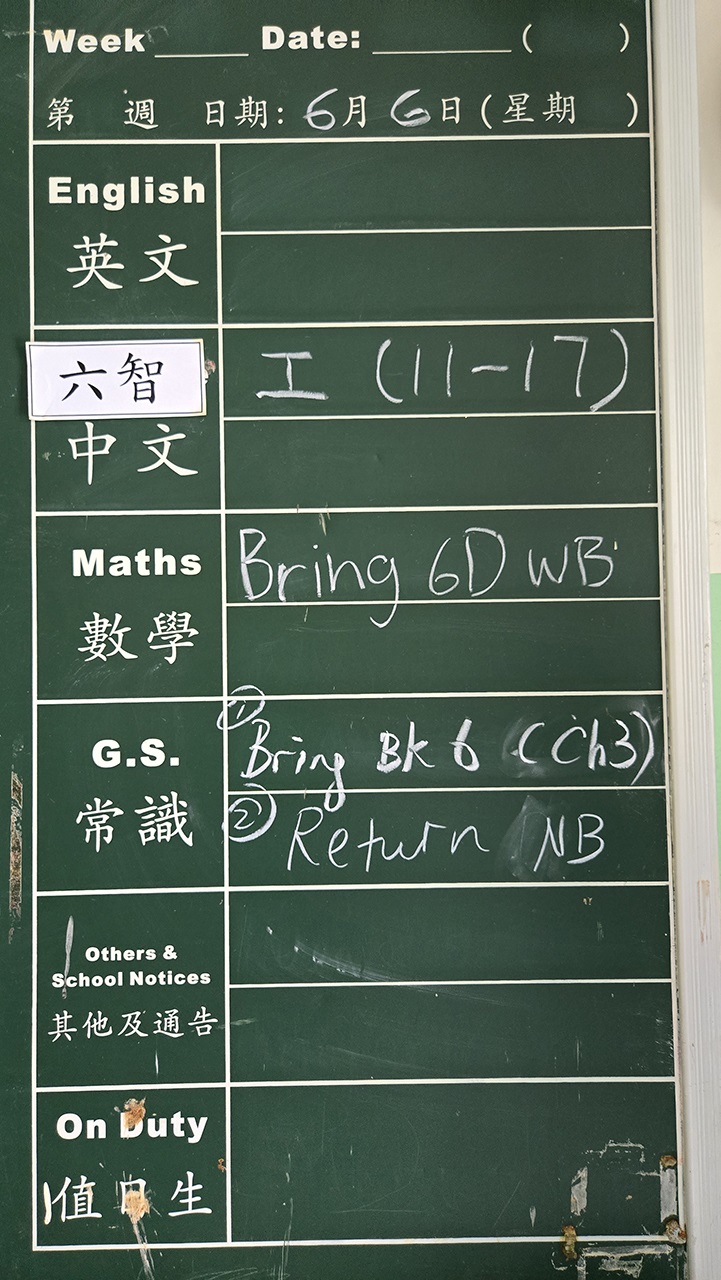 Week ____ Date: ________ ( )
第 週 日期: 6月6日(星期 )
English
英文
六智
工 (11-17)
中文
Maths
Bring 6D WB
數學
G.S.
① Bring BK 6 (Ch3)
常識
② Return NB
Others &
School Notices
其他及通告
On Duty
值日生